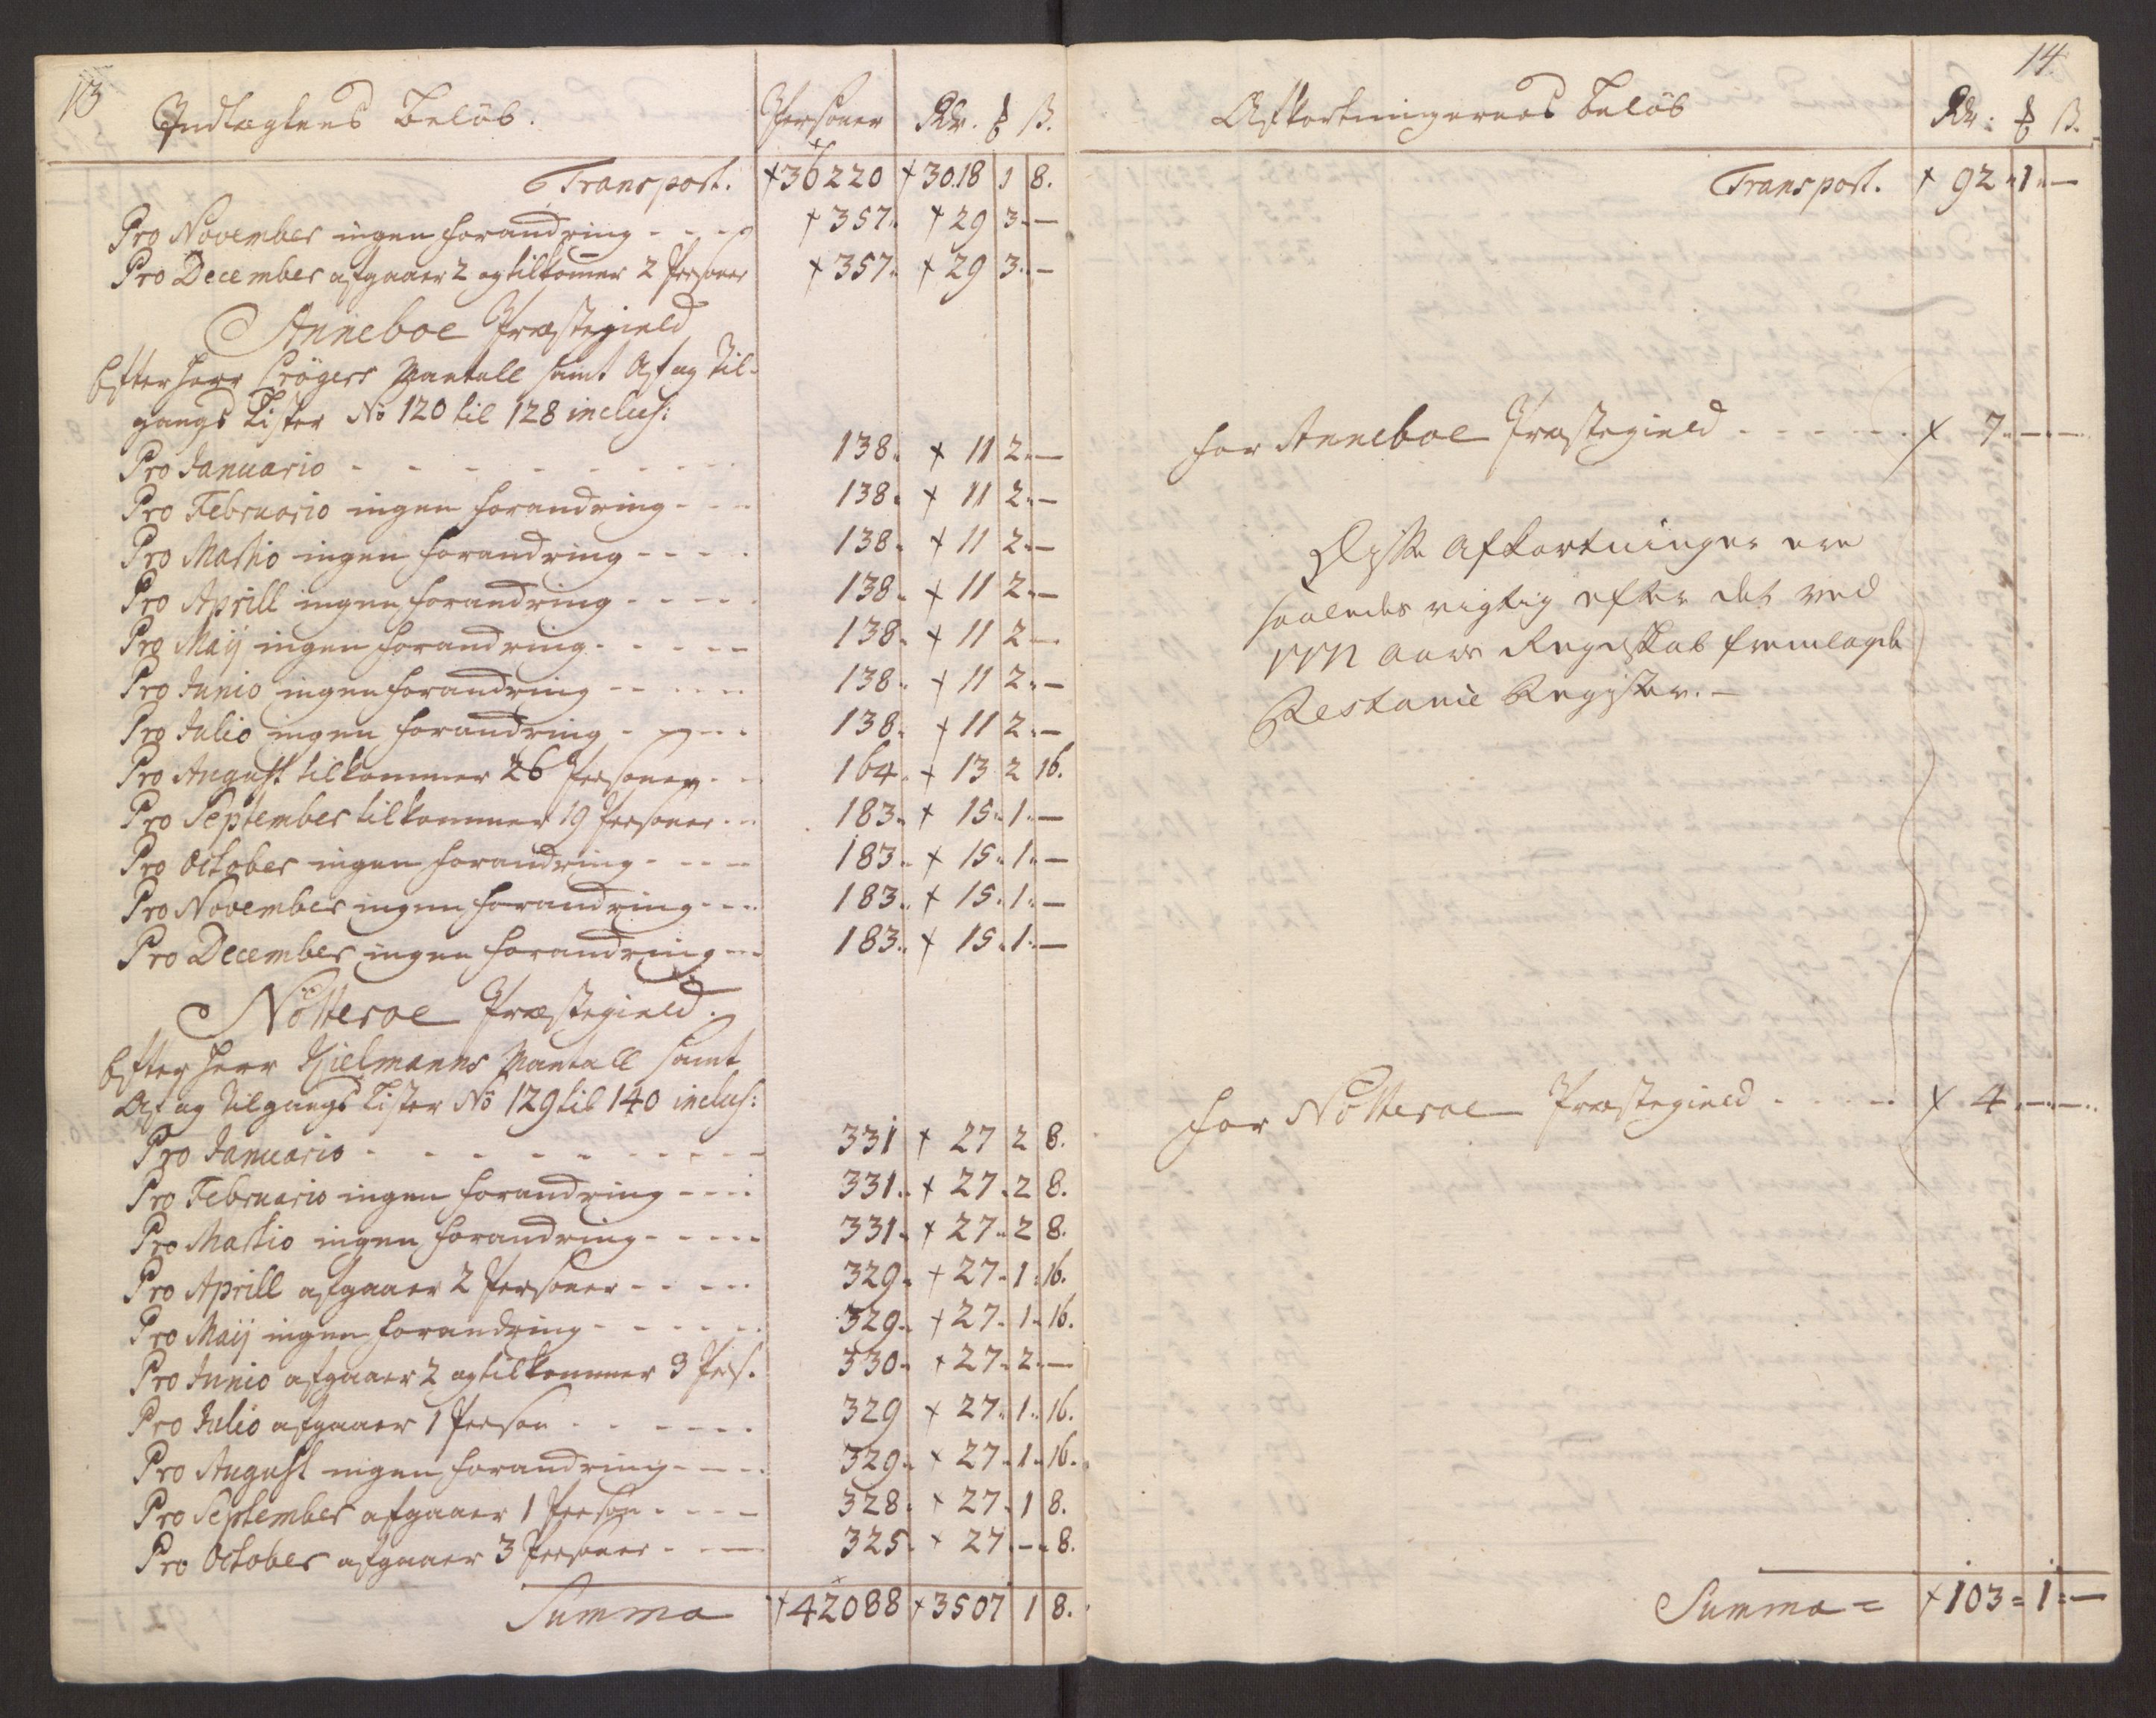 13
Indtægtens Beløb. Personer Rdr. ℔ ß.
Transport. +36220 +3018 1 8.
Pro November ingen forandring - - - +357. +29 3. —
Pro December afgaaer 2 og tilkommer 2 Personer +357. +29 3. —
Anneboe Præstegield
Efter Herr Crögers Mantall samt Af og Til-
gangs Lister No 120 til 128 inclus:
Pro Januario - - - - - - - - 138. + 11 2. —
Pro Februario ingen forandring - - - 138. + 11 2. —
Pro Martio ingen forandring - - - - 138. + 11 2. —
Pro Aprill ingen forandring - - - - 138. + 11 2. —
Pro Maij ingen forandring - - - - - 138. + 11 2 —
Pro Junio ingen forandring - - - - - 138. + 11 2. —
Pro Julio ingen forandring - - - - 138. + 11 2. —
Pro August tilkommer 26 Personer - - 164. + 13 2 16.
Pro September tilkommer 19 Personer - - 183. + 15. 1. —
Pro October ingen forandring - - - - 183. + 15. 1. —
Pro November ingen forandring - - - 183. + 15. 1. —
Pro December ingen forandring - - - 183. + 15. 1. —
Nötteroe Præstegield.
Efter Herr Hielmanns Mantall samt
Af og Tilgangs Lister No 129 til 140 inclus:
Pro Januario - - - - - - - - - 331 + 27 2 8.
Pro Februario ingen forandring - - - 331. + 27. 2 8.
Pro Martio ingen forandring - - - - - 331. + 27. 2 8.
Pro Aprill afgaaer 2 Personer - - - - - 329. + 27. 1. 16.
Pro Maij ingen forandring - - - - - - 329. + 27. 1. 16.
Pro Junio afgaaer 2 og tilkommer 3 Pers. 330. + 27. 2. —
Pro Julio afgaaer 1 Person - - - - - - 329 + 27. 1. 16.
Pro August ingen forandring - - - - 329. + 27. 1. 16.
Pro September afgaaer 1 Person - - - - 328. + 27. 1 8.
Pro October afgaaer 3 Personer - - - - 325. + 27. — 8.
Summa +42088 +3507 1 8.
14
Afkortningernes Beløb Rdr. ℔ ß.
Transport. + 92. 1. —
for Anneboe Præstegield - - - - - - + 7. — —
Disse Afkortninger ere
saaledes rigtig efter det ved
aars Regnskab fremlagde
Restance Register. —
for Nötteroe Præstegield - - - - - + 4. — —
Summa = +103 = 1 = —